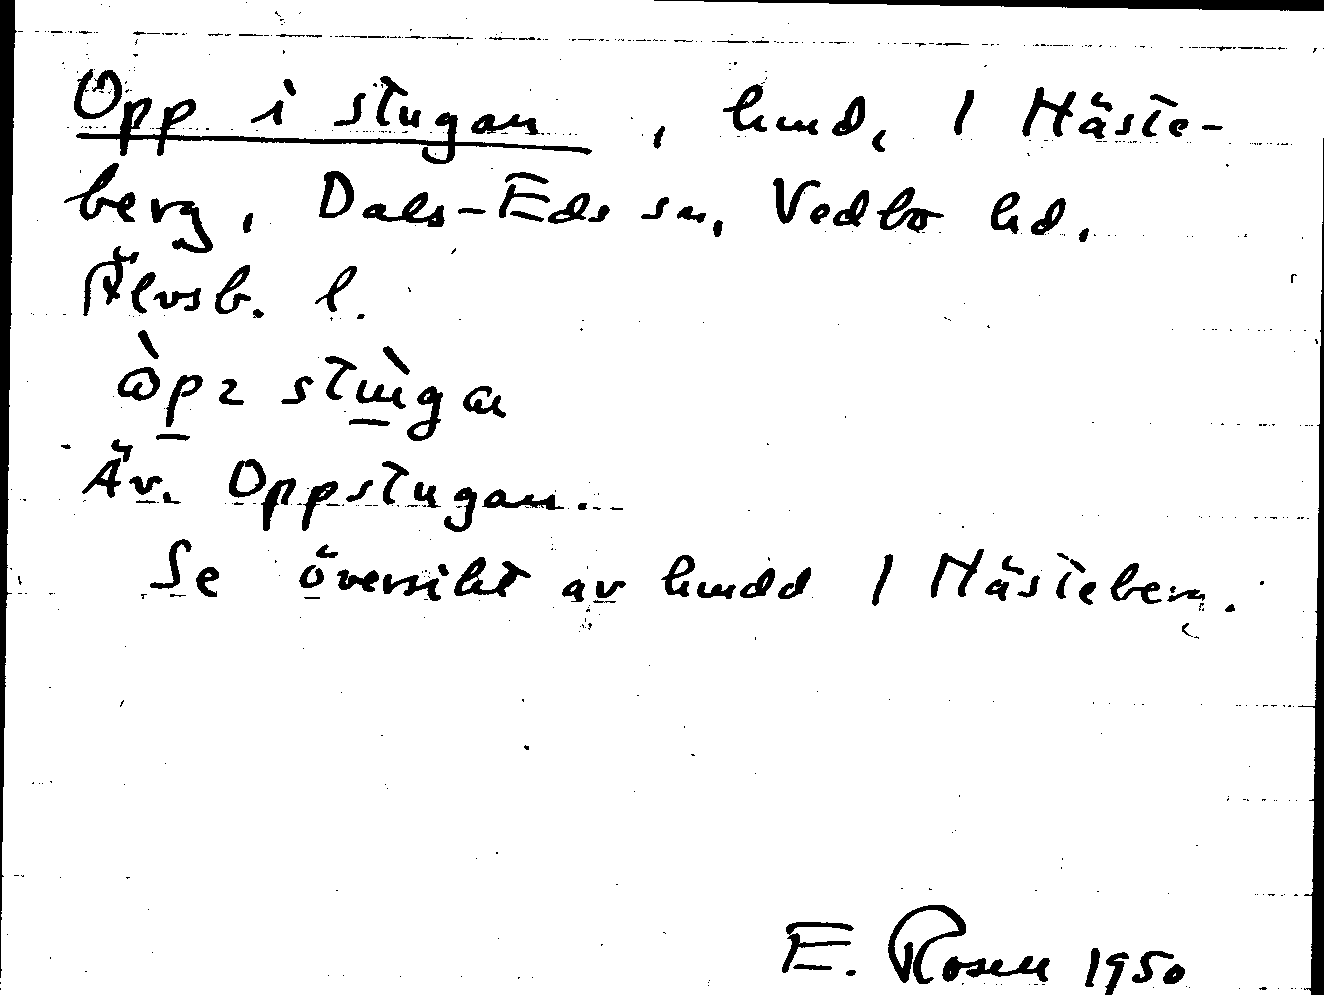 Opp i stugan, hmd, 1 Häste-
berg, Dals-Eds sn, Vedbo hd,
Älvsb. l.
Äv. Oppstugan.
Se översikt av hmdd 1 Hästeberg.
E. Rosell 1950